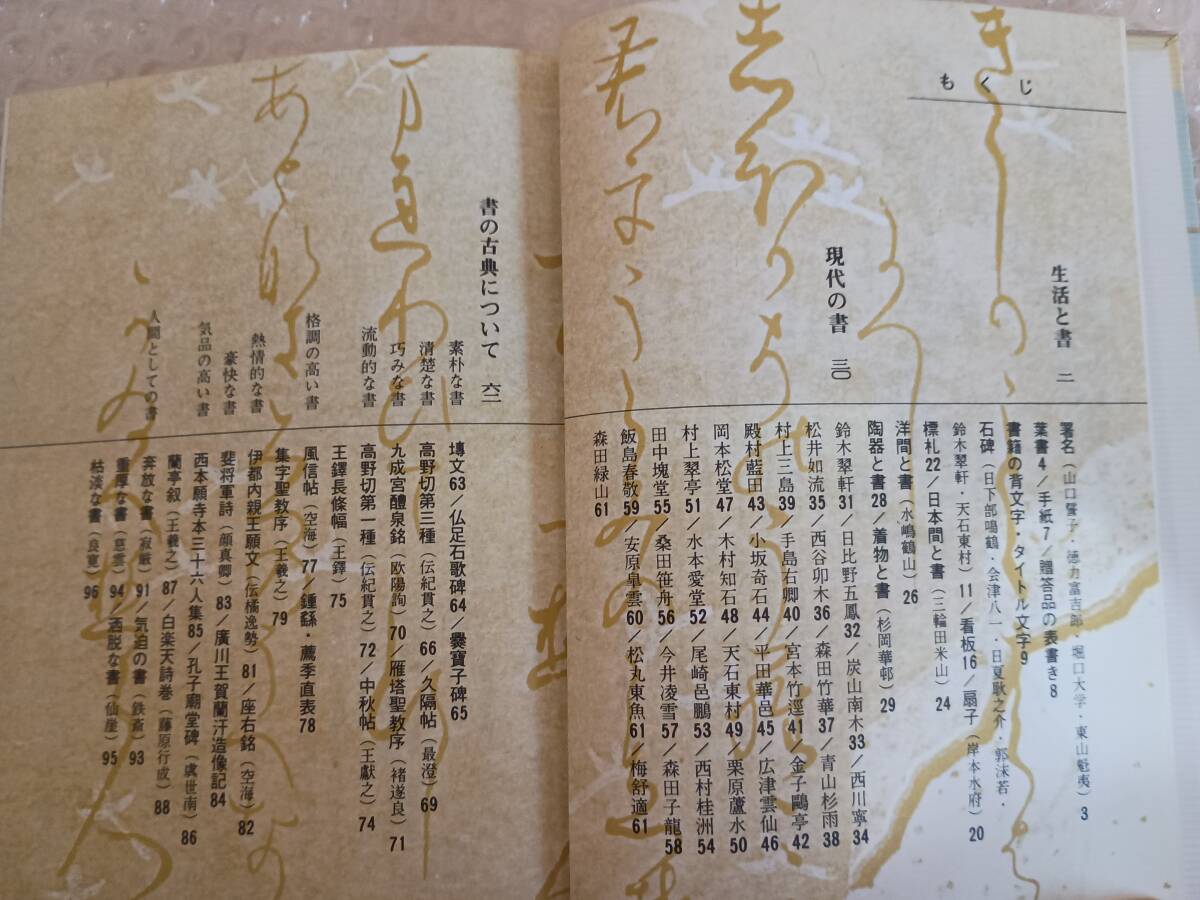 もくじ
生活と書 二
署名(山口誓子・徳力富吉郎・堀口大学・東山魁夷)3
葉書4/手紙7/贈答品の表書き8
書籍の背文字・タイトル文字9
石碑(日下部鳴鶴・会津八一・日夏耿之介・郭沫若・
鈴木翠軒・天石東村)11/看板16/扇子(岸本水府)20
標札22/日本間と書(三輪田米山)24
洋間と書(水嶋鶴山)26
陶器と書28/着物と書(杉岡華邨)29
現代の書 三〇
鈴木翠軒31/日比野五鳳32/炭山南木33/西川寧34
松井如流35/西谷卯木36/森田竹華37/青山杉雨38
村上三島39/手島右卿40/宮本竹逕41/金子鷗亭42
殿村藍田43/小坂奇石44/平田華邑45/広津雲仙46
岡本松堂47/木村知石48/天石東村49/栗原蘆水50
村上翠亭51/水本愛堂52/尾崎邑鵬53/西村桂洲54
田中塊堂55/桑田笹舟56/今井凌雪57/森田子龍58
飯島春敬59/安原皐雲60/松丸東魚61/梅舒適61
森田緑山61
書の古典について 六二
素朴な書 塼文63/仏足石歌碑64/爨寶子碑65
清楚な書 高野切第三種(伝紀貫之)66/久隔帖(最澄)69
巧みな書 九成宮醴泉銘(欧陽詢)70/雁塔聖教序(褚遂良)71
流動的な書 高野切第一種(伝紀貫之)72/中秋帖(王献之)74
王鐸長條幅(王鐸)75
格調の高い書 風信帖(空海)77/鍾繇・薦季直表78
集字聖教序(王羲之)79
熱情的な書 伊都内親王願文(伝橘逸勢)81/座右銘(空海)82
豪快な書 裴将軍詩(顔真卿)83/廣川王賀蘭汗造像記84
気品の高い書 西本願寺本三十六人集85/孔子廟堂碑(虞世南)86
蘭亭叙(王羲之)87/白楽天詩巻(藤原行成)88
人間としての書 奔放な書(寂厳)91/気迫の書(鉄斎)93
重厚な書(慈雲)94/洒脱な書(仙崖)95
枯淡な書(良寛)96